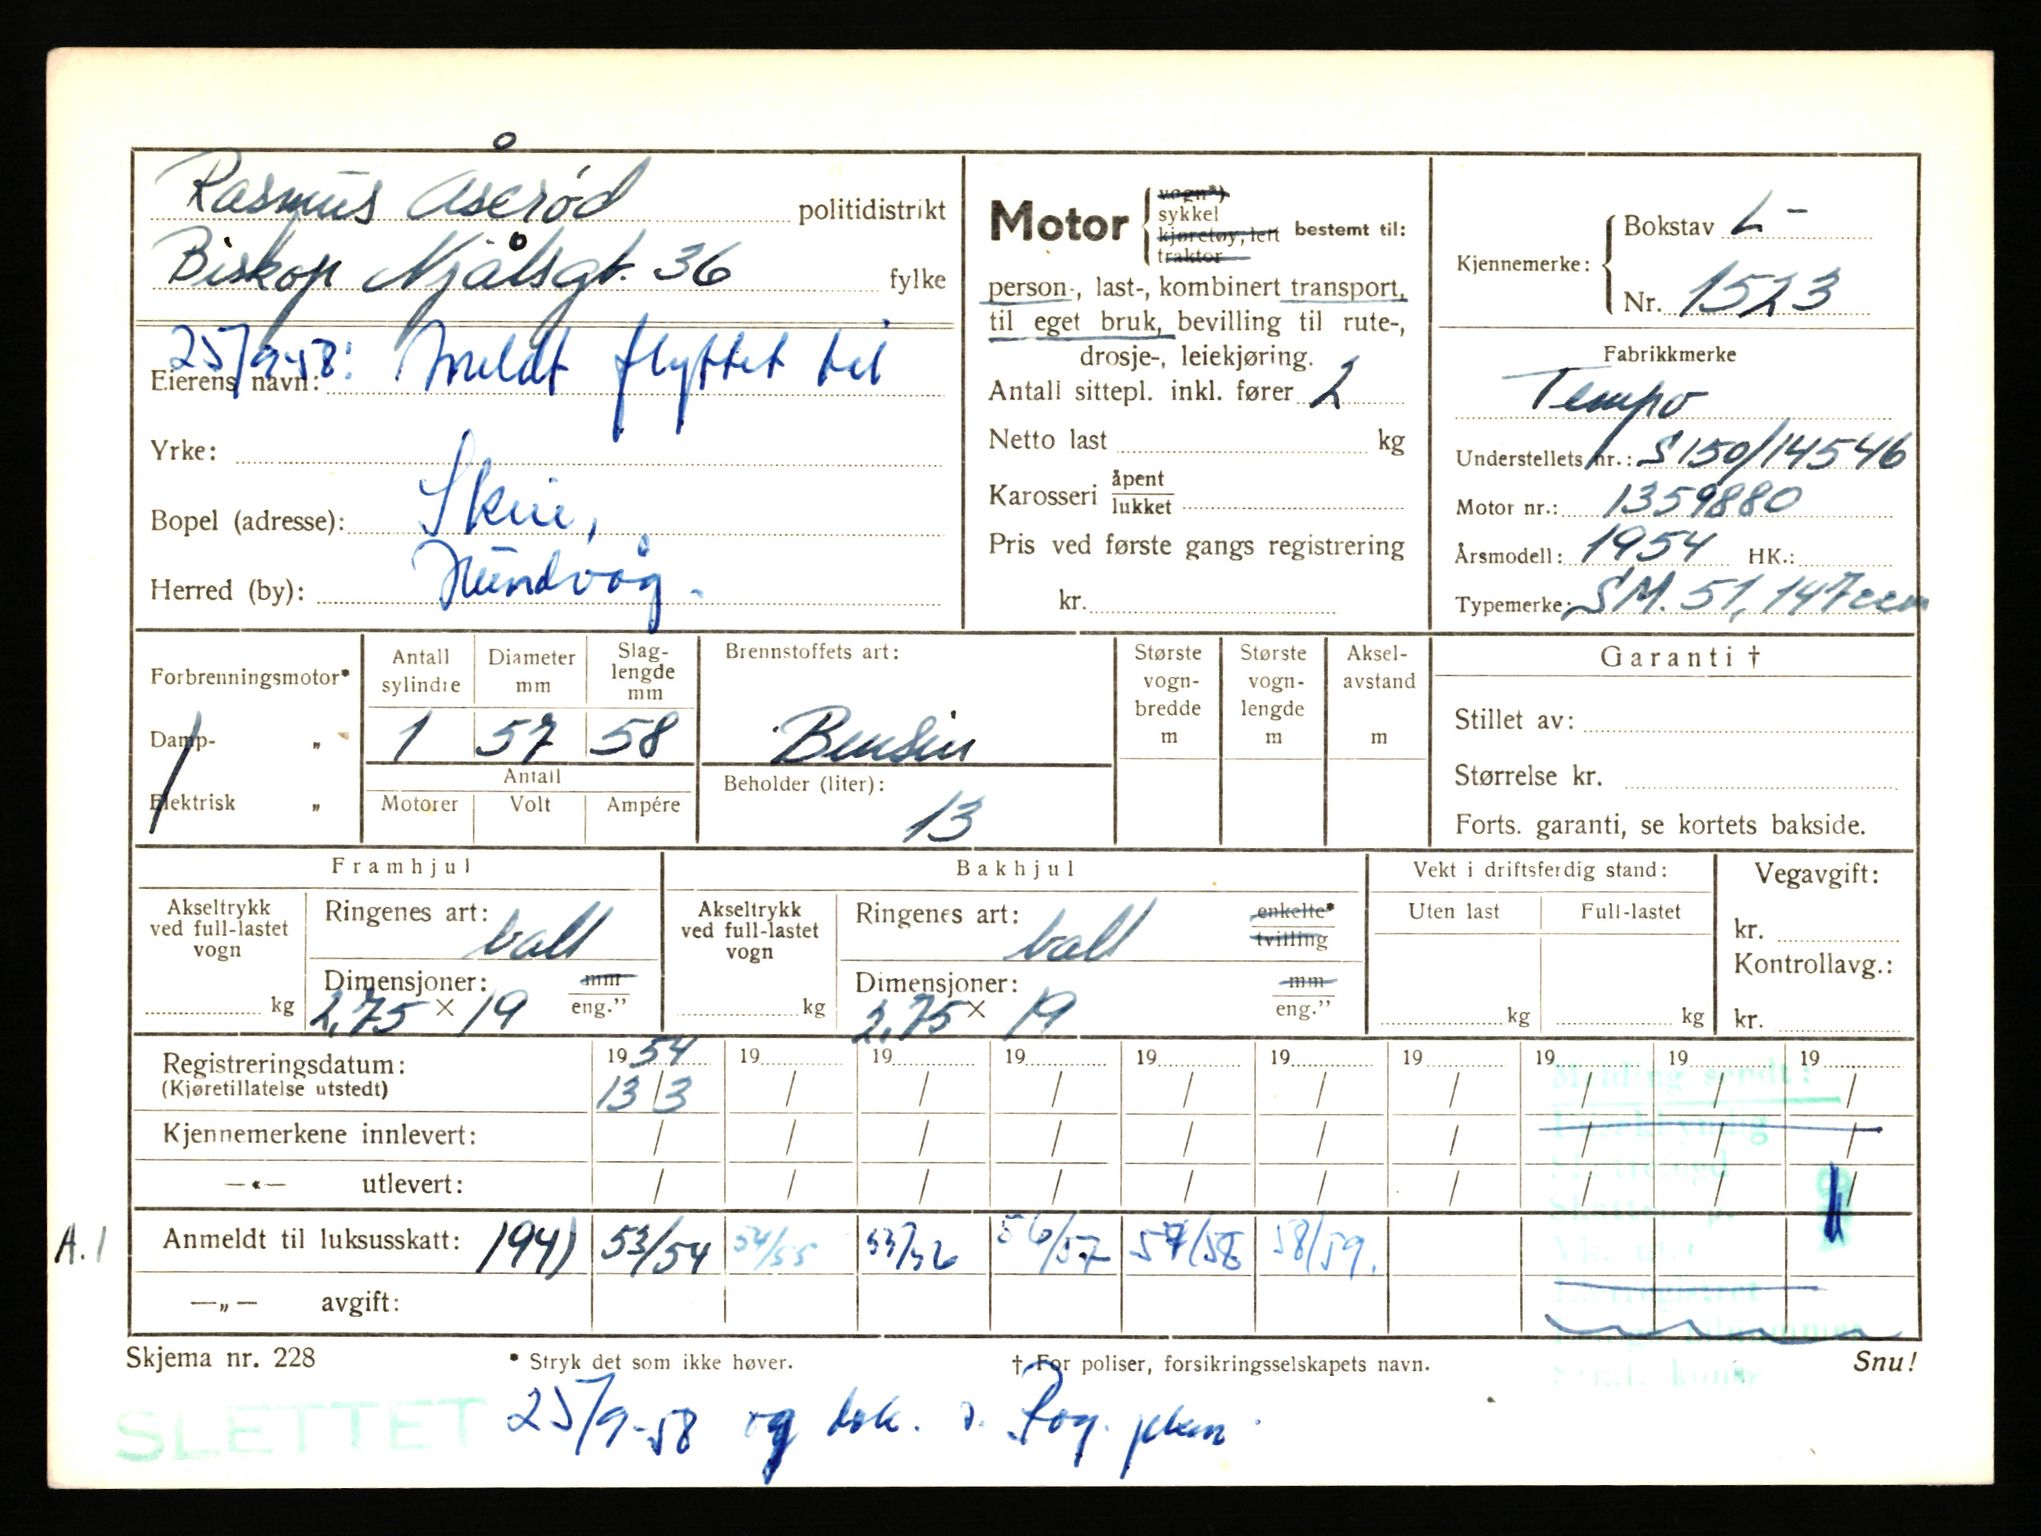 Rasmus Åserød politidistrikt
Biskop Njålsgt. 36 fylke
25/9-58: Meldt flyttet til
Eierens navn:
Yrke:
Skeie,
Bopel (adresse):
Hundvåg.
Herred (by):
Motor { vogn*) sykkel kjøretøy, lett traktor bestemt til:
person-, last-, kombinert transport,
til eget bruk, bevilling til rute-,
drosje-, leiekjøring.
Antall sittepl. inkl. fører 2
Netto last kg
Karosseri åpent lukket
Pris ved første gangs registrering
kr.
Kjennemerke: { Bokstav L-
Nr. 1523
Fabrikkmerke
Tempo
Understellets nr.: S150/14546
Motor nr.: 1359880
Årsmodell: 1954 HK.:
Typemerke: SM. 51, 147ccm
Forbrenningsmotor*
Damp- „
Elektrisk „
Antall sylindre Diameter mm Slag-lengde mm
1 57 58
Antall
Motorer Volt Ampére
Brennstoffets art:
Bensin
Beholder (liter):
13
Største vogn-bredde m
Største vogn-lengde m
Aksel-avstand m
Garanti †
Stillet av:
Størrelse kr.
Forts. garanti, se kortets bakside.
Framhjul
Akseltrykk ved full-lastet vogn
kg
Ringenes art: ball
Dimensjoner: mm
2,75 × 19 eng."
Bakhjul
Akseltrykk ved full-lastet vogn
kg
Ringenes art: ball enkelte* tvilling
Dimensjoner: mm
2,75 × 19 eng."
Vekt i driftsferdig stand:
Uten last Full-lastet
kg kg
Vegavgift:
kr.
Kontrollavg.:
kr.
Registreringsdatum: 1954 19 19 19 19 19 19 19 19 19
(Kjøretillatelse utstedt) 13/3 / / / / / / / / /
Melding sendt:
Kjennemerkene innlevert: / / / / / / / / / /
—«— utlevert: / / / / / / / / / /
A.1 Anmeldt til luksusskatt: 1941 53/54 54/55 55/56 56/57 57/58 58/59.
—„— avgift:
Skjema nr. 228 * Stryk det som ikke høver. † For poliser, forsikringsselskapets navn. Snu!
SLETTET 25/9-58 og